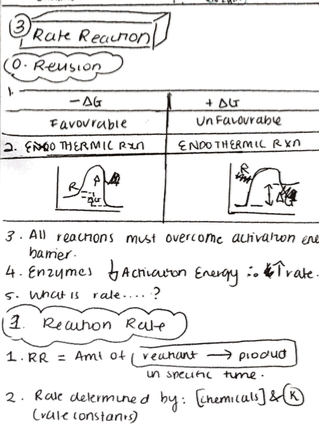 ③ Rate Reaction
0. Revision
1.
-ΔG
+ ΔG
Favourable
Unfavourable
2. ENDOTHERMIC Rxn
ENDOTHERMIC Rxn
R P
ΔG
R
ΔG
3. All reactions must overcome activation ene
barrier.
4. Enzymes ↓ Activation Energy ∴ ↑ rate.
5. What is rate....?
1. Reaction Rate
1. RR = Amt of reactant → product
in specific time.
2. Rate determined by: [chemicals] & K
(rate constants)